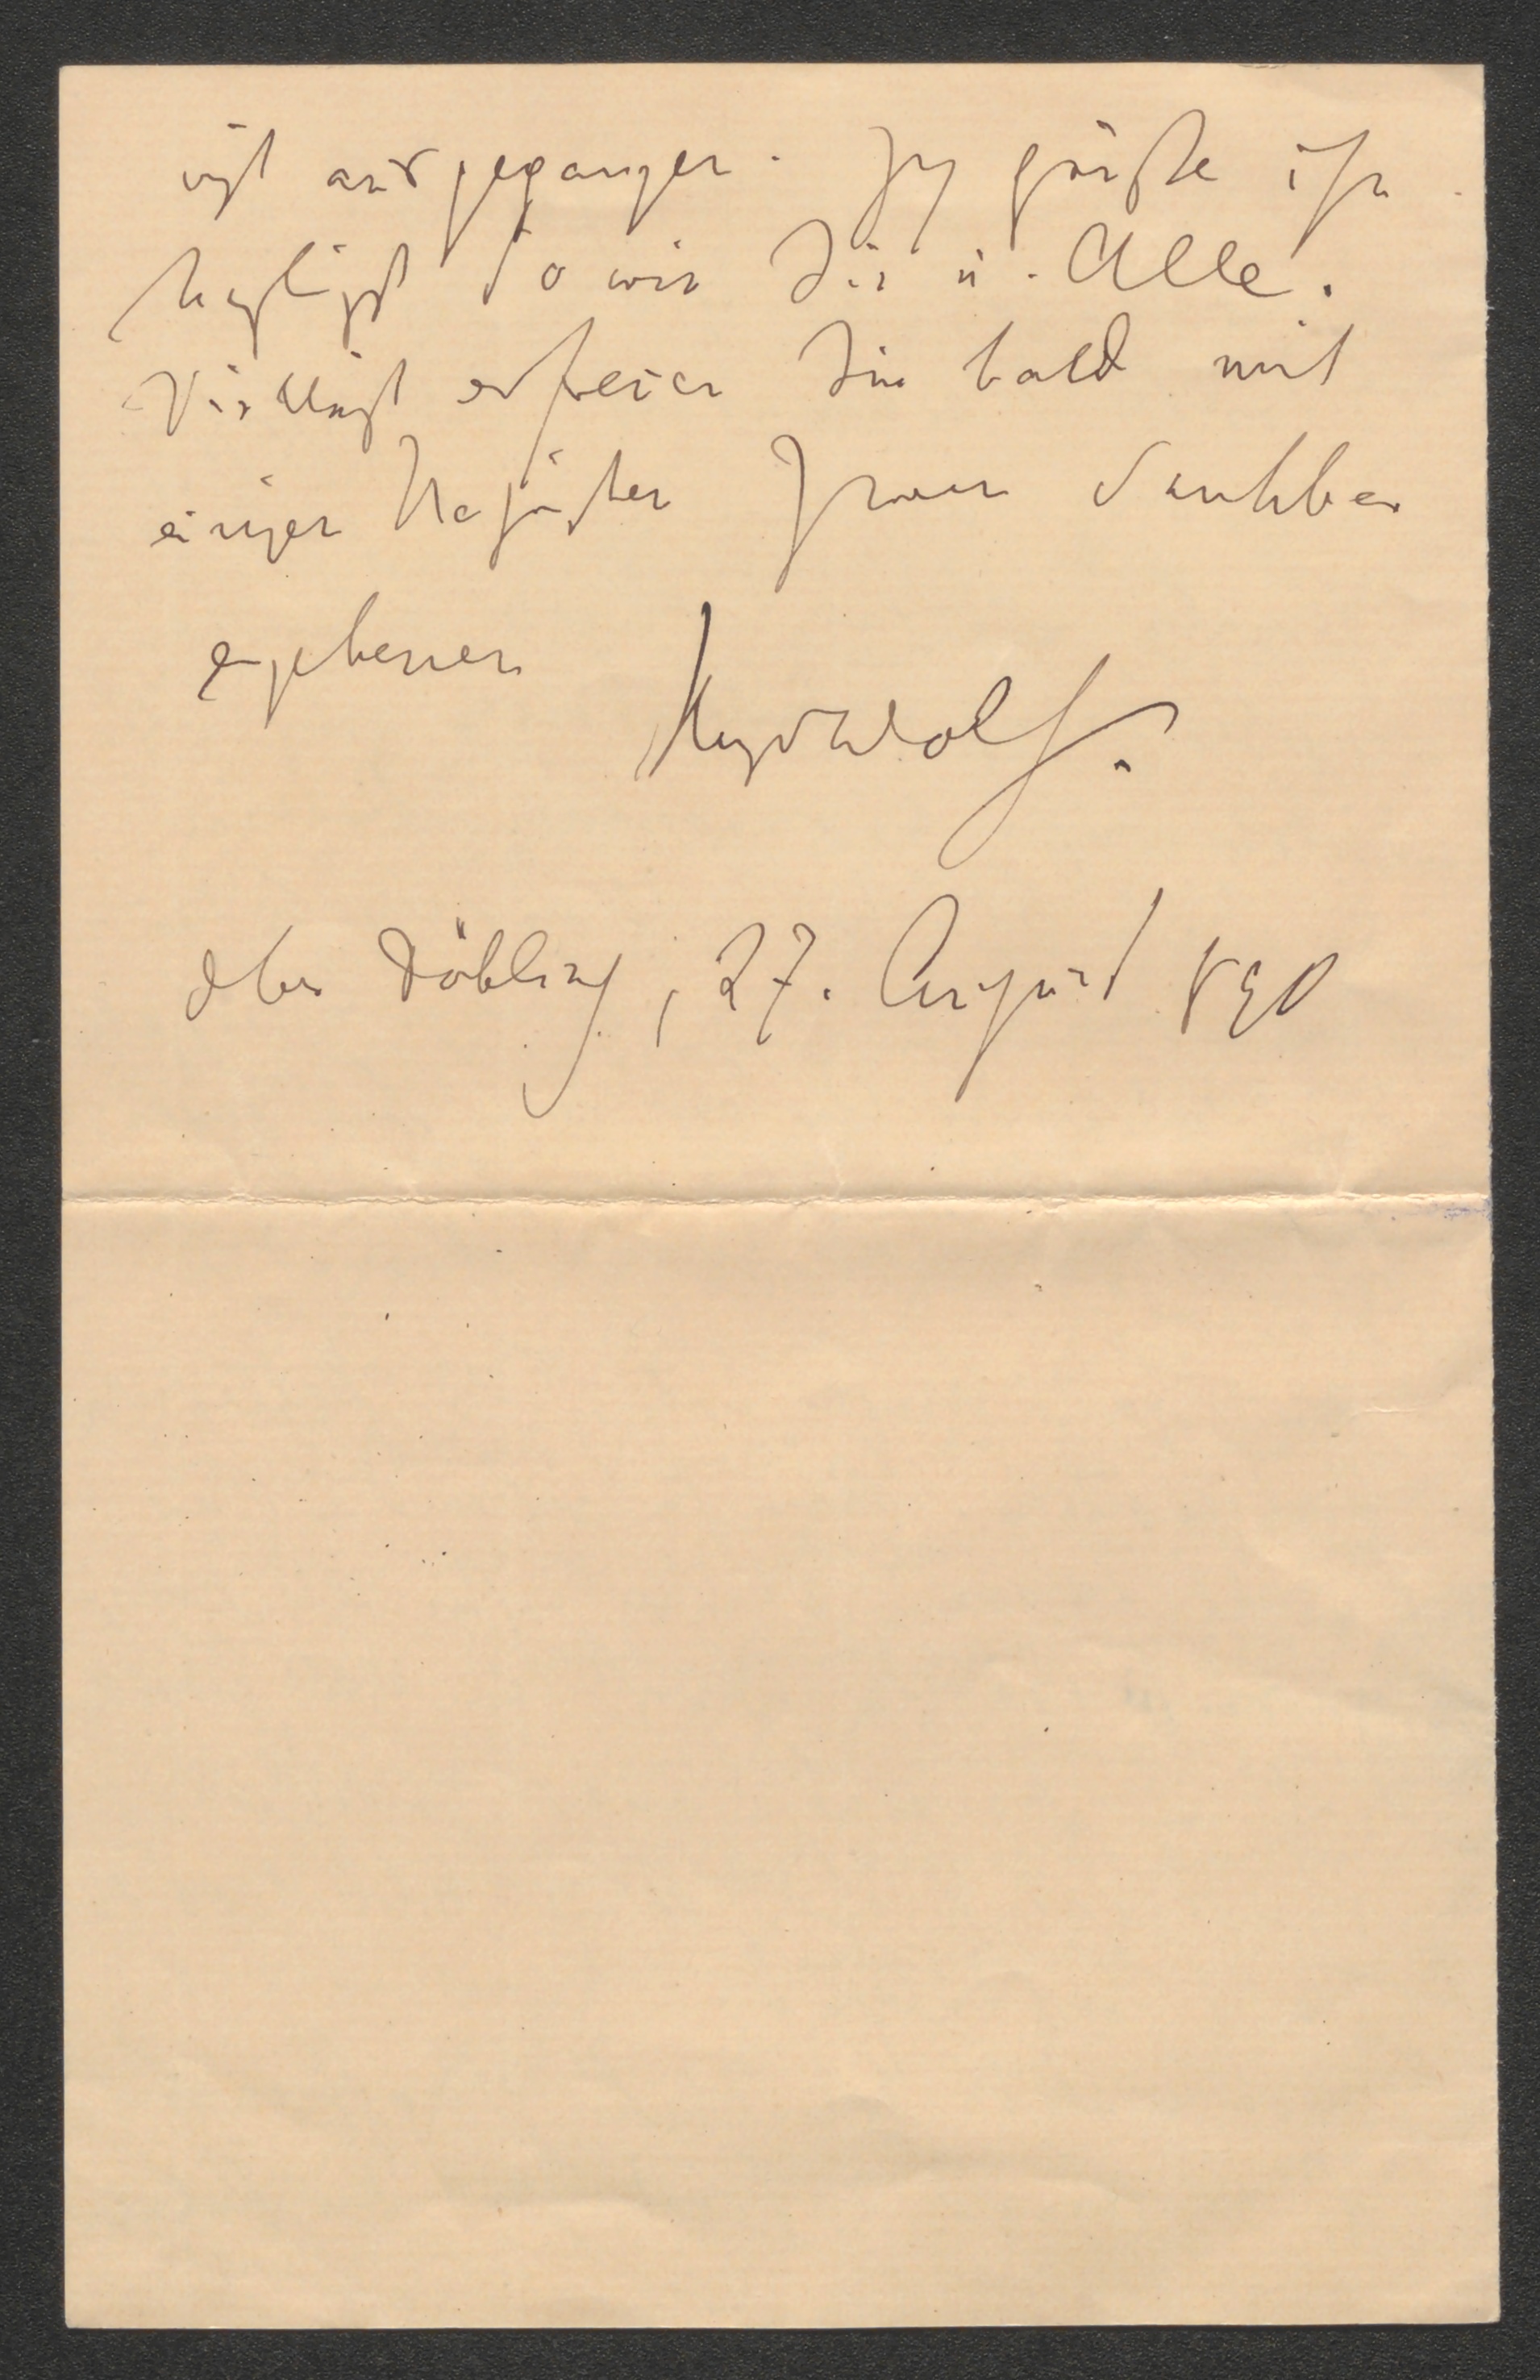 nicht ausgegangen. Ich grüße ihn
herzlichst sowie Sie u. Alle.
Vielleicht erfreuen Sie bald mit
einigen Nachrichten Ihren dankbar
ergebenen
Hugo Wolf.
Ober Döbling, 27. August 890